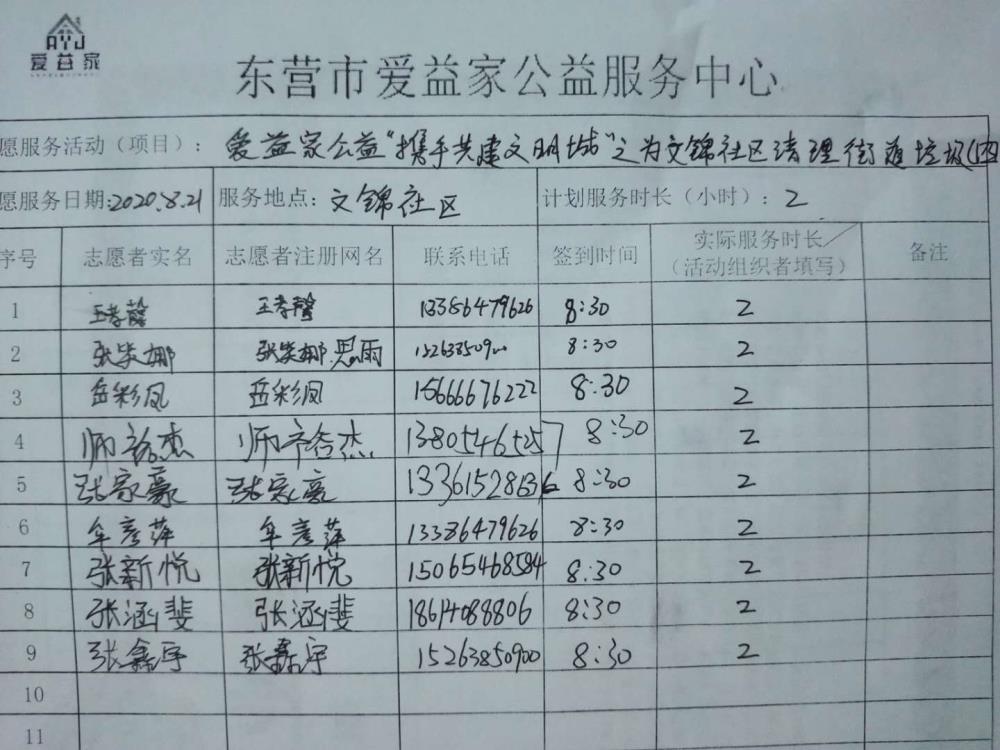 AYJ
爱益家
东营市爱益家公益服务中心
愿服务活动（项目）： 爱益家公益“携手共建文明城”之为文锦社区清理街道垃圾(四
愿服务日期:2020.8.21 服务地点: 文锦社区 计划服务时长（小时）: 2
序号 志愿者实名 志愿者注册网名 联系电话 签到时间 实际服务时长（活动组织者填写） 备注
1 王孝馨 王孝馨 13386479626 8:30 2
2 张棠娜 张棠娜.思雨 15263850900 8:30 2
3 岳彩凤 岳彩凤 15666676222 8:30 2
4 师裕杰 师裕杰 13805465257 8:30 2
5 张家豪 张家豪 13361528636 8:30 2
6 牟彦萍 牟彦萍 13386479626 8:30 2
7 张新悦 张新悦 15065468584 8:30 2
8 张涵斐 张涵斐 18614088806 8:30 2
9 张鑫宇 张鑫宇 15263850900 8:30 2
10
11